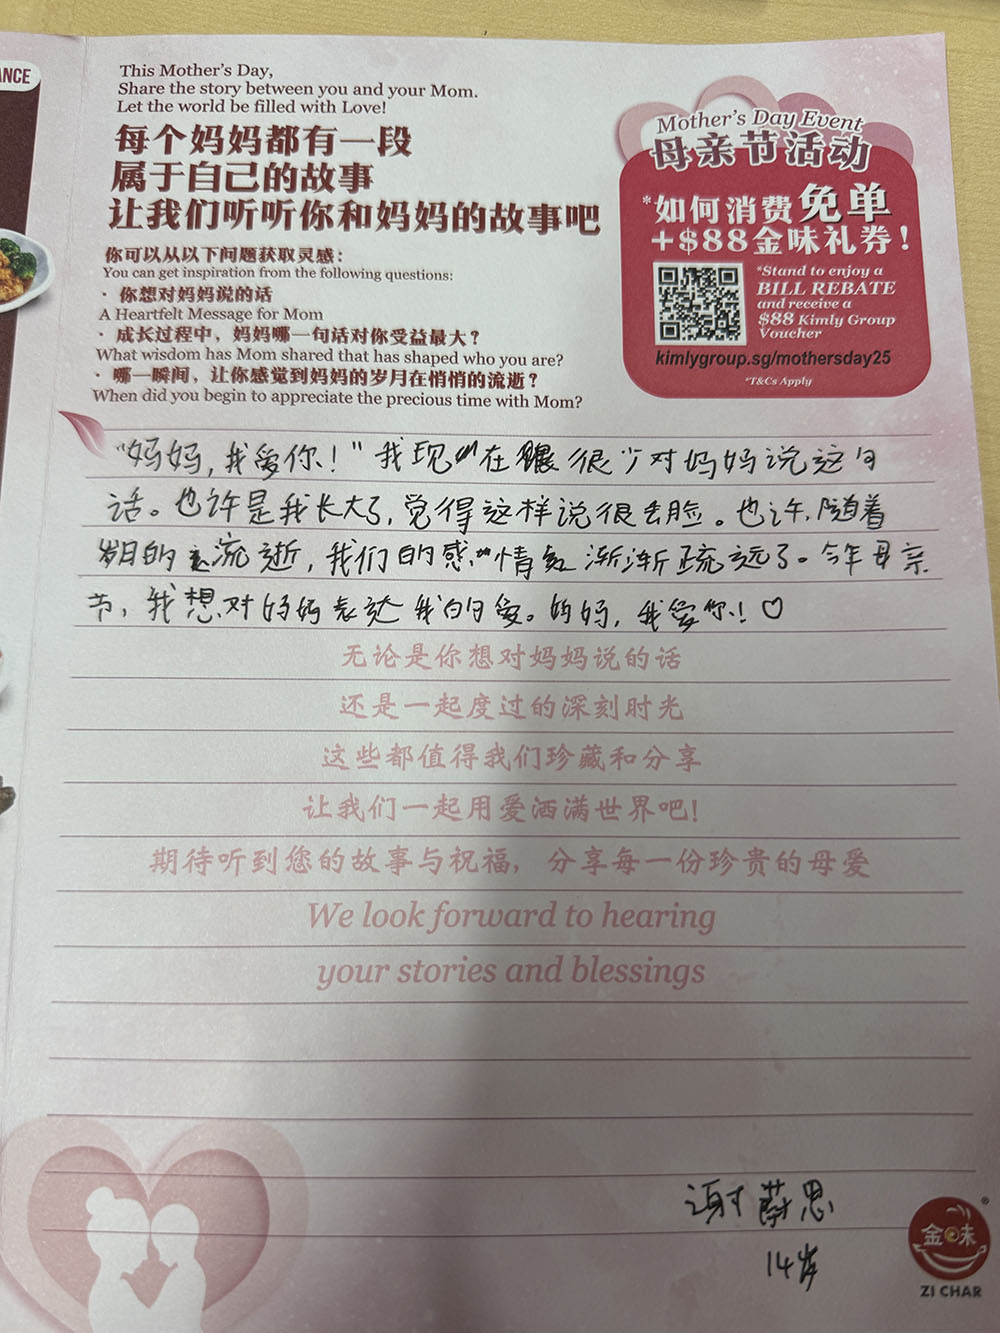 ANCE
This Mother's Day,
Share the story between you and your Mom.
Let the world be filled with Love!
每个妈妈都有一段
属于自己的故事
让我们听听你和妈妈的故事吧
你可以从以下问题获取灵感：
You can get inspiration from the following questions:
· 你想对妈妈说的话
A Heartfelt Message for Mom
· 成长过程中，妈妈哪一句话对你受益最大？
What wisdom has Mom shared that has shaped who you are?
· 哪一瞬间，让你感觉到妈妈的岁月在悄悄的流逝？
When did you begin to appreciate the precious time with Mom?
Mother's Day Event
母亲节活动
*如何消费免单
+$88金味礼券！
*Stand to enjoy a
BILL REBATE
and receive a
$88 Kimly Group
Voucher
kimlygroup.sg/mothersday25
*T&Cs Apply
“妈妈，我爱你！”我现在很少对妈妈说这句
话。也许是我长大了，觉得这样说很丢脸。也许，随着
岁月的流逝，我们的感情渐渐疏远了。今年母亲
节，我想对妈妈表达我的爱。妈妈，我爱你！♡
无论是你想对妈妈说的话
还是一起度过的深刻时光
这些都值得我们珍藏和分享
让我们一起用爱洒满世界吧!
期待听到您的故事与祝福，分享每一份珍贵的母爱
We look forward to hearing
your stories and blessings
谢蔚思
14岁
金味
®
ZI CHAR